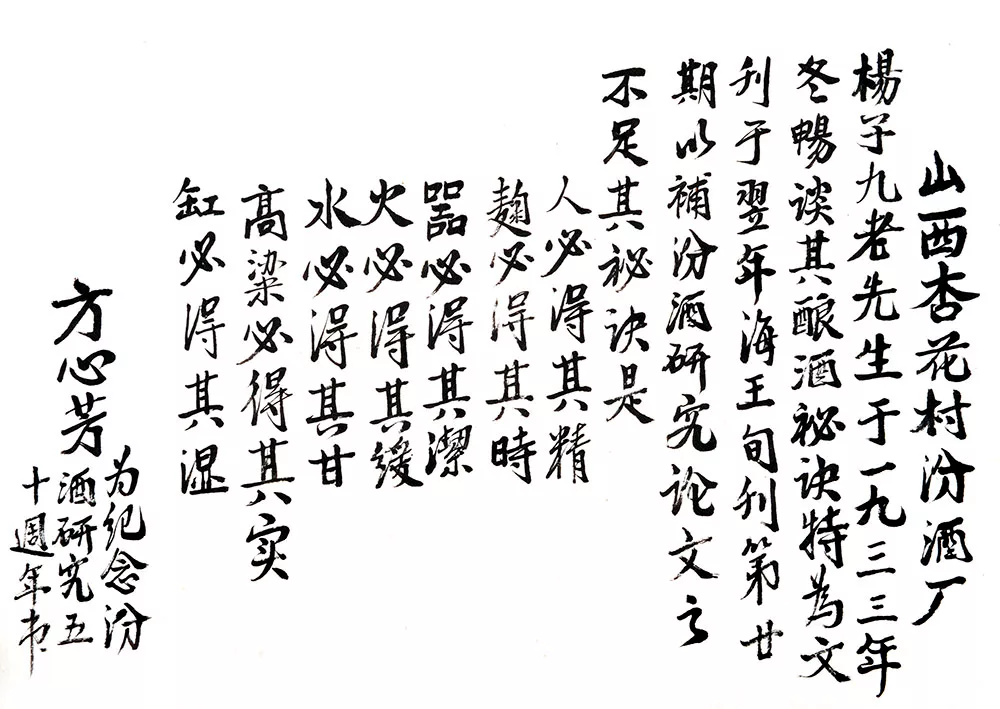 山西杏花村汾酒厂
楊子九老先生于一九三三年
冬暢谈其酿酒祕诀特為文
刊于翌年海王旬刊第廿
期以補汾酒研究论文之
不足其祕诀是
人必得其精
麯必得其時
器必得其潔
火必得其缓
水必得其甘
高粱必得其实
缸必得其湿
方心芳
为纪念汾
酒研究五
十週年书